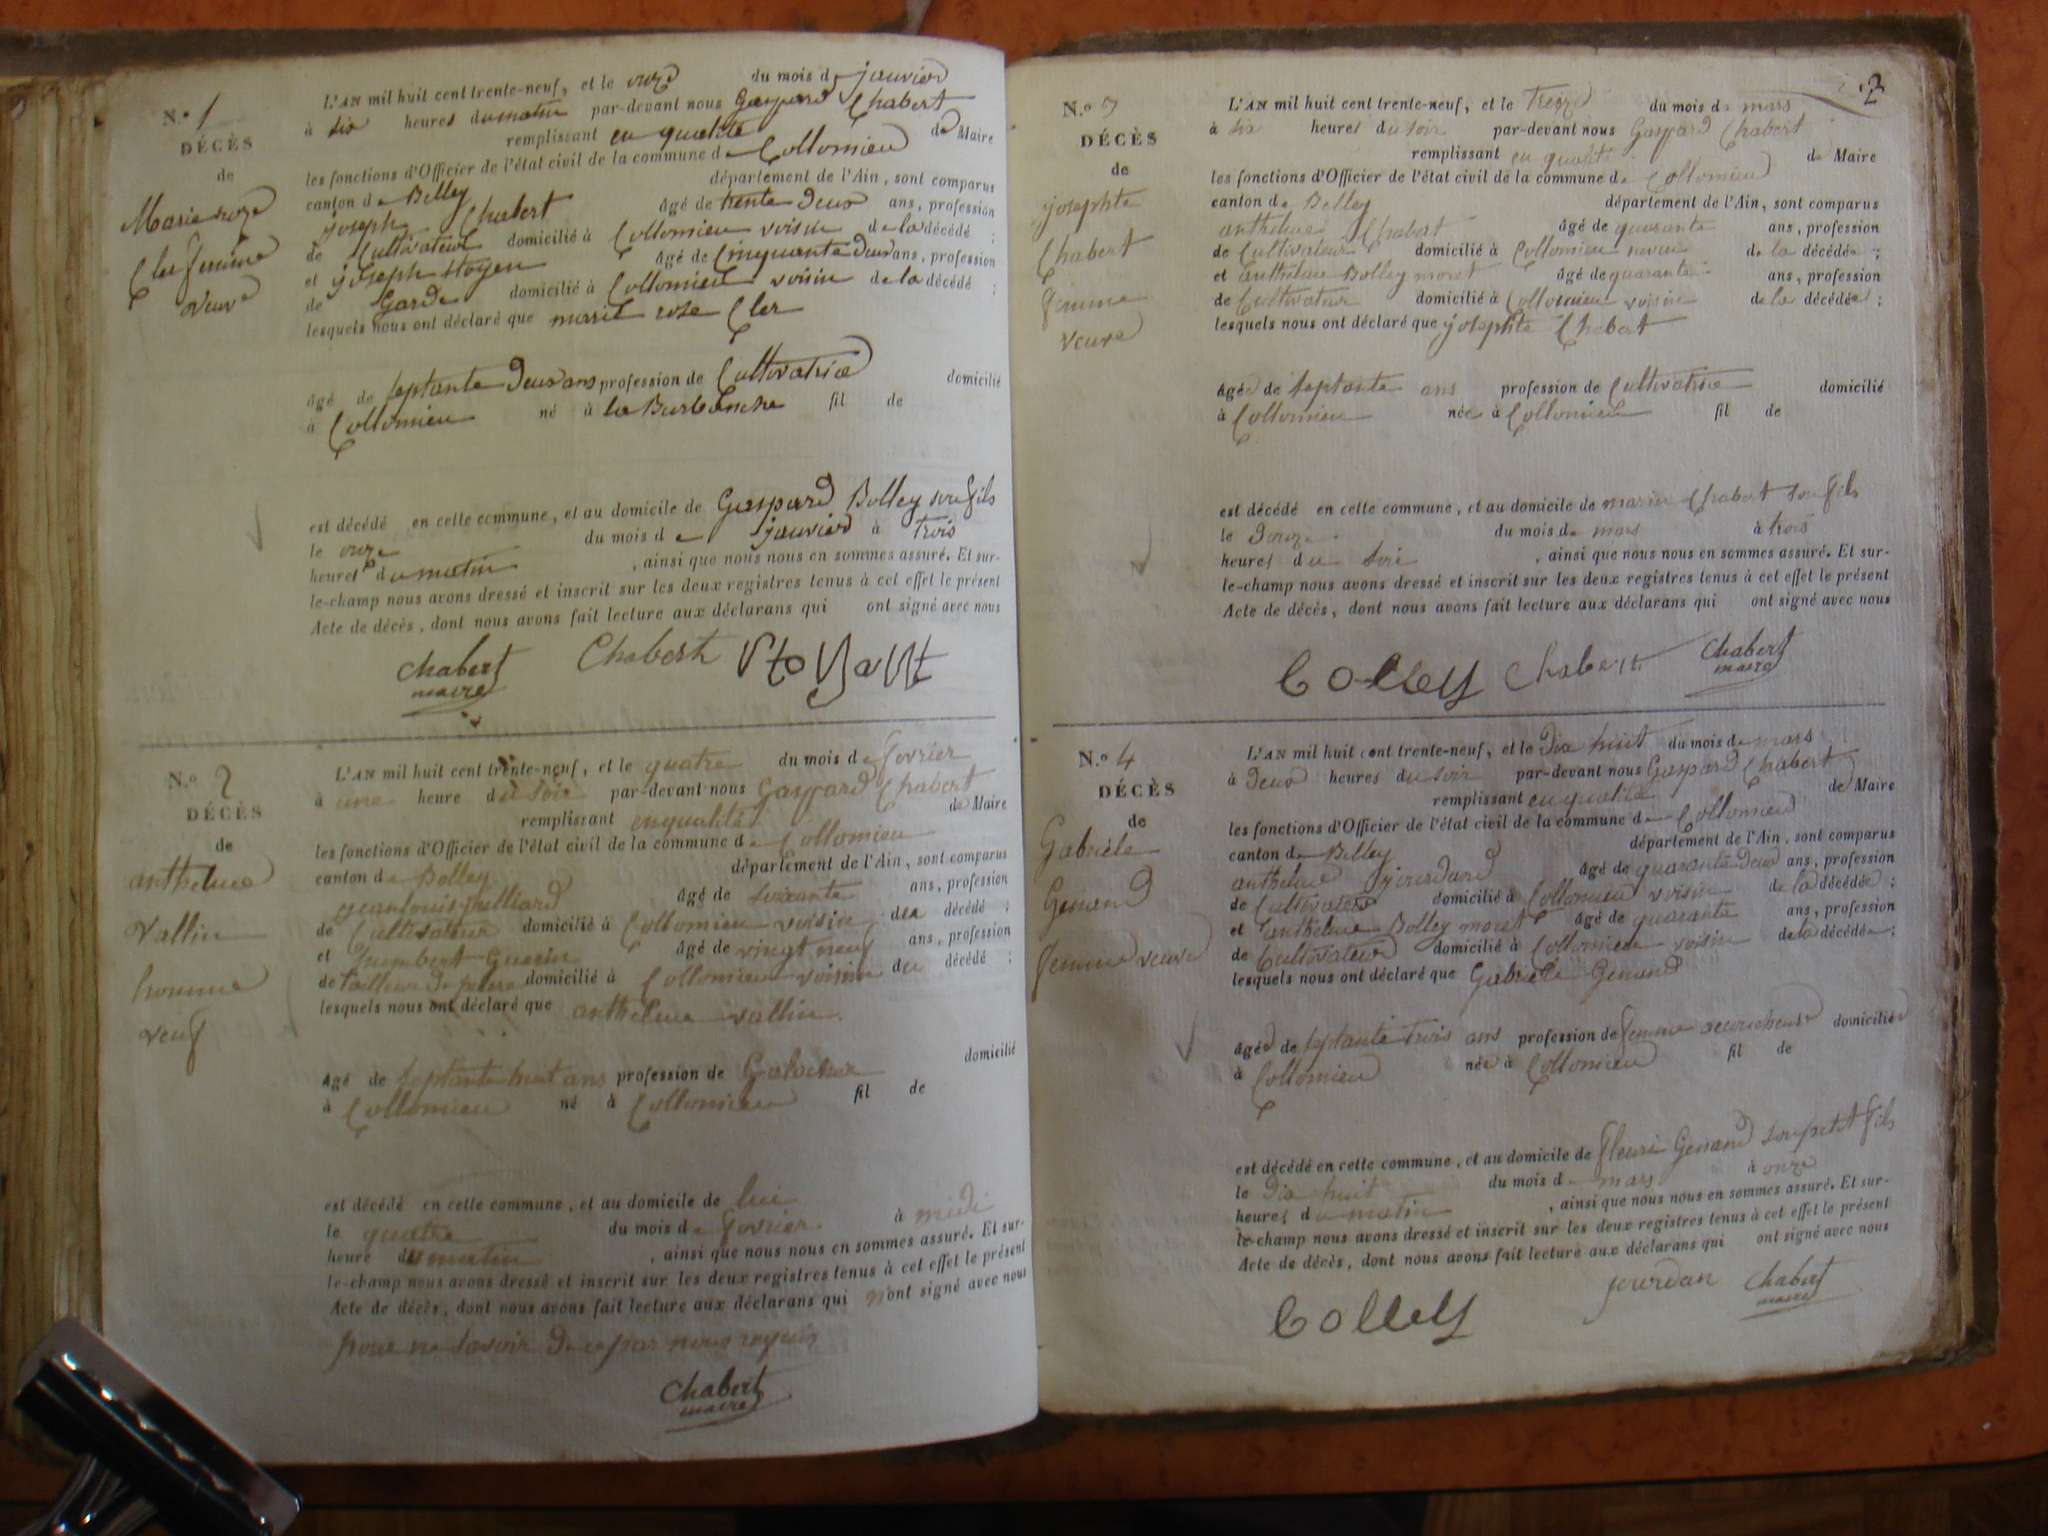 N.º 1
DÉCÈS
de
Marie roze
Cler femme
veuve
L'AN mil huit cent trente-neuf, et le onze du mois de janvier
à six heures du matin par-devant nous Gaspard Chabert
remplissant en qualité de Maire
les fonctions d'Officier de l'état civil de la commune de Collomieu
canton de Belley département de l'Ain, sont comparus
joseph Chabert âgé de trente deux ans, profession
de Cultivateur domicilié à Collomieu voisin de la décédé ;
et joseph Stoyen âgé de Cinquante deux ans, profession
de Garde domicilié à Collomieu voisin de la décédé ;
lesquels nous ont déclaré que marie roze Cler
âgé de septante deux ans profession de Cultivatrice domicilié
à Collomieu né à la Burbanche fil de
est décédé en cette commune, et au domicile de Gaspard Bolley son fils
le onze du mois de janvier à trois
heures du matin , ainsi que nous nous en sommes assuré. Et sur-
le-champ nous avons dressé et inscrit sur les deux registres tenus à cet effet le présent
Acte de décès, dont nous avons fait lecture aux déclarans qui ont signé avec nous
Chabert Chabert
maire
N.º 2
DÉCÈS
de
anthelme
vallin
homme
veuf
L'AN mil huit cent trente-neuf, et le quatre du mois de fevrier
à une heure du soir par-devant nous Gaspard Chabert
remplissant en qualité de Maire
les fonctions d'Officier de l'état civil de la commune de Collomieu
canton de Belley département de l'Ain, sont comparus
jean louis julliard âgé de soixante ans, profession
de Cultivateur domicilié à Collomieu voisin du décédé ;
et humbert Guerin âgé de vingt neuf ans, profession
de tailleur de pierre domicilié à Collomieu voisin du décédé ;
lesquels nous ont déclaré que anthelme vallin
âgé de septante huit ans profession de domicilié
à Collomieu né à Collomieu fil de
est décédé en cette commune, et au domicile de lui
le quatre du mois de fevrier à midi
heure du matin , ainsi que nous nous en sommes assuré. Et sur-
le-champ nous avons dressé et inscrit sur les deux registres tenus à cet effet le présent
Acte de décès, dont nous avons fait lecture aux déclarans qui n'ont signé avec nous
pour ne savoir de ce par nous requis
Chabert
maire
2
N.º 3
DÉCÈS
de
josephte
Chabert
femme
veuve
L'AN mil huit cent trente-neuf, et le treize du mois de mars
à six heures du soir par-devant nous Gaspard Chabert
remplissant en qualité de Maire
les fonctions d'Officier de l'état civil de la commune de Collomieu
canton de Belley département de l'Ain, sont comparus
anthelme Chabert âgé de quarante ans, profession
de Cultivateur domicilié à Collomieu neveu de la décédée ;
et anthelme Bolley moret âgé de quarante ans, profession
de Cultivateur domicilié à Collomieu voisin de la décédée ;
lesquels nous ont déclaré que josephte Chabert
âgée de septante ans profession de Cultivatrice domicilié
à Collomieu née à Collomieu fil de
est décédé en cette commune, et au domicile de Chabert son fils
le douze du mois de mars à trois
heures du soir , ainsi que nous nous en sommes assuré. Et sur-
le-champ nous avons dressé et inscrit sur les deux registres tenus à cet effet le présent
Acte de décès, dont nous avons fait lecture aux déclarans qui ont signé avec nous
bolley Chabert Chabert
maire
N.º 4
DÉCÈS
de
Gabriele
Genand
femme veuve
L'AN mil huit cent trente-neuf, et le dix huit du mois de mars
à deux heures du soir par-devant nous Gaspard Chabert
remplissant en qualité de Maire
les fonctions d'Officier de l'état civil de la commune de Collomieu
canton de Belley département de l'Ain, sont comparus
anthelme jourdand âgé de quarante deux ans, profession
de Cultivateur domicilié à Collomieu voisin de la décédée ;
et anthelme Bolley moret âgé de quarante ans, profession
de Cultivateur domicilié à Collomieu voisin de la décédée ;
lesquels nous ont déclaré que Gabriele Genand
âgée de septante trois ans profession de femme domiciliée
à Collomieu née à Collomieu fil de
est décédé en cette commune, et au domicile de fleuri Genand son petit fils
le dix huit du mois de mars à onze
heures du matin , ainsi que nous nous en sommes assuré. Et sur-
le-champ nous avons dressé et inscrit sur les deux registres tenus à cet effet le présent
Acte de décès, dont nous avons fait lecture aux déclarans qui ont signé avec nous
bolley jourdan Chabert
maire